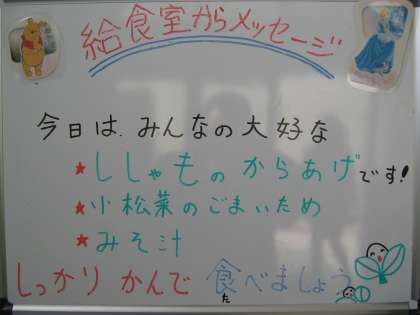 給食室からメッセージ
今日は、みんなの大好な
★ししゃものからあげです!
★小松菜のごまいため
★みそ汁
しっかりかんで食べましょう
た